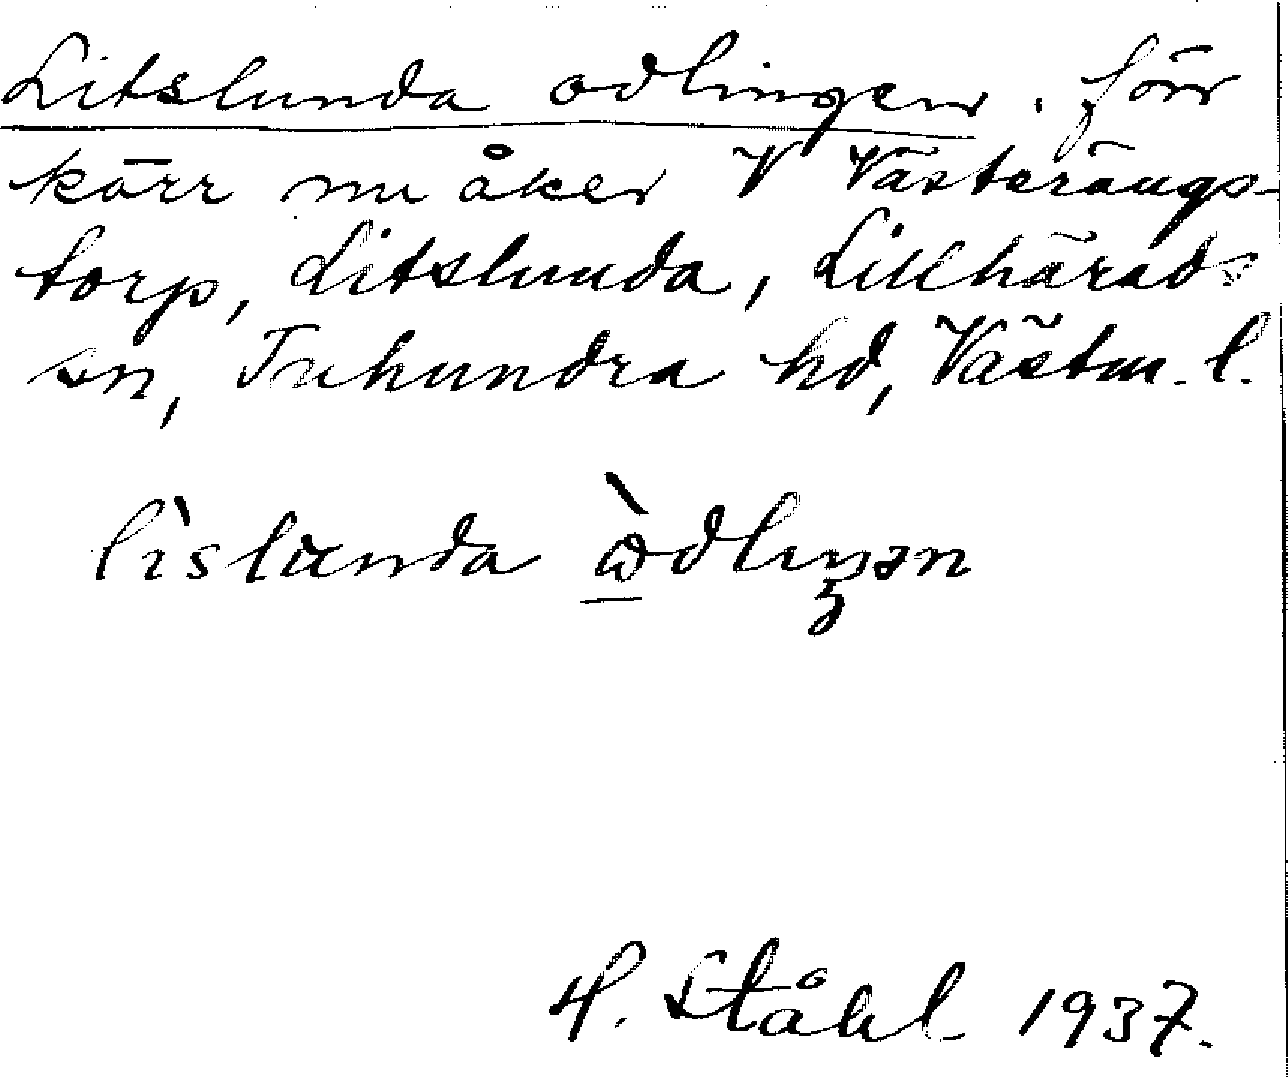 Litslunda odlingen. förr
kärr nu åker V Västerängs-
torp, Litslunda, Lillhärads
sn, Tuhundra hd, Västm. l.
lìslunda ὼdlıŋən
H. Ståhl 1937.